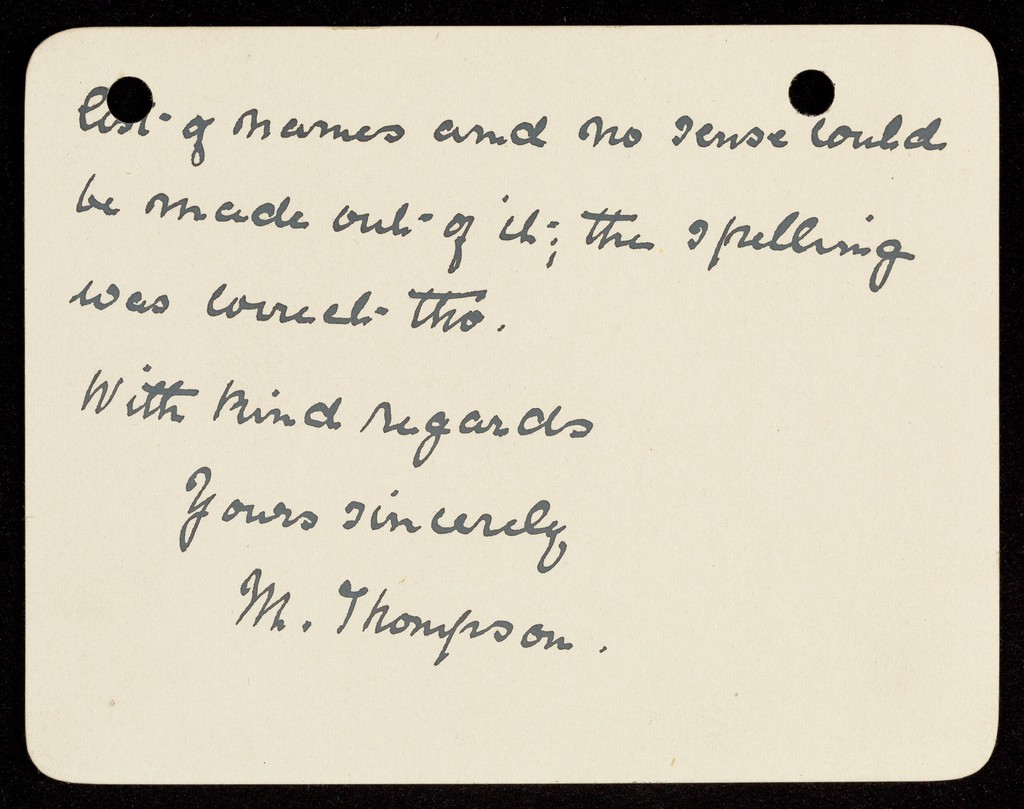 list of names and no sense could
be made out of it; the spelling
was correct tho.
With kind regards
Yours sincerely
M. Thompson.